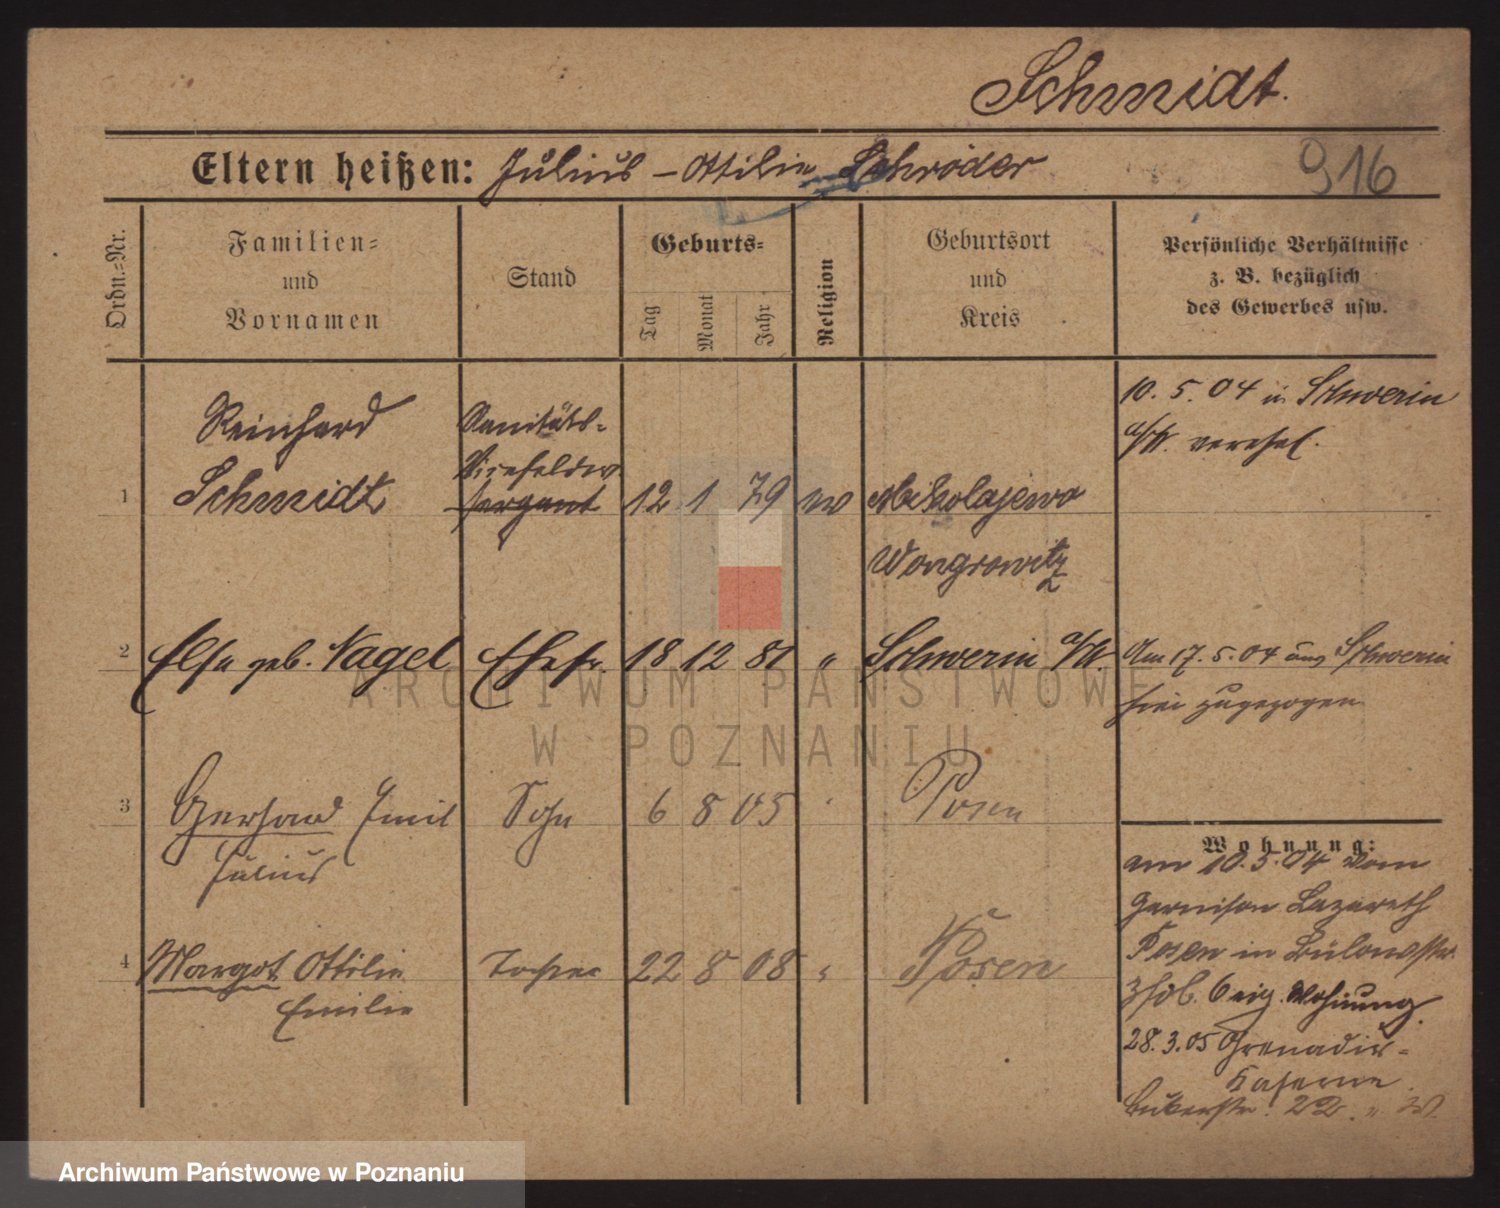 Schmidt.
Eltern heißen: Julius – Ottilie Schröder
916
Ordn.=Nr.
Familien=
und
Vornamen
Stand
Geburts=
Tag
Monat
Jahr
Religion
Geburtsort
und
Kreis
Persönliche Verhältnisse
z. B. bezüglich
des Gewerbes usw.
10. 5. 04 in Schwerin
a/W. verehel.
Reinhard
Sanitäts-
Vizefeldw.
1 Schmidt sergeant 12 1 79 Mikolajewo
Wongrowitz
2 Else geb. Nagel Ehefr. 18 12 81 " Schwerin a/W.
Am 17. 5. 04 aus Schwerin
hier zugezogen
3 Gerhard Emil Sohn 6 8 05 Posen
Julius
Wohnung:
am 10.5.04 vom
Garnison Lazareth
Posen in Bülowstr.
28.3.05 Grenadier-
Kaserne
4 Margot Ottilie Tochter 22 8 08 " Posen
Emilie
22
ARCHIWUM PAŃSTWOWE
W POZNANIU
Archiwum Państwowe w Poznaniu